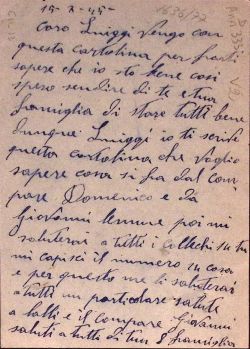 15-3-45-
Caro Luiggi Vengo con
questa cartolina per farti
sapere che io sto bene cosi
spero sendire di te e tua
framiglia di stare tutti bene
dunque Luiggi io ti scrivo
questa cartolina che voglio
sapere cosa si fa dal Com
pare Domenico e da
Giovanni poi mi
saluterai a tutti i collechi
mi capisci il numero in cosa
e per questo me li saluterai
a tutti un particolare saluti
a tutti e il compare Giovanni
saluti a tutti di tua framiglia